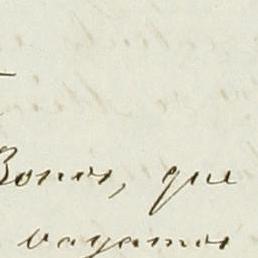 Bonos, que
vayamos